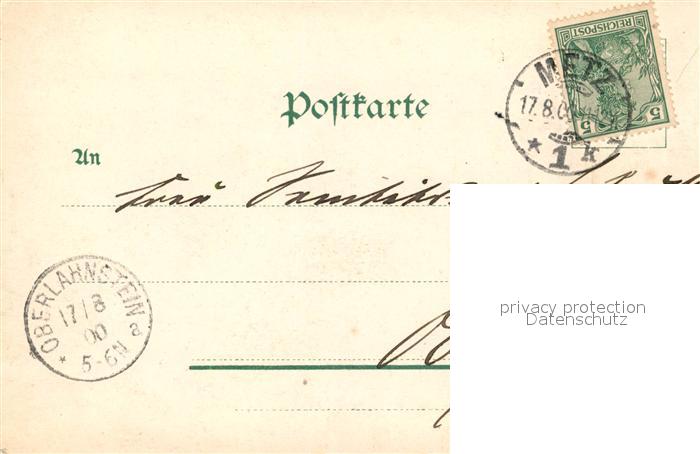 REICHSPOST
5 5
METZ
17.8.0
* 1 k
Postkarte
An
Frau
privacy protection
Datenschutz
OBERLAHNSTEIN a
17/8
00
* 5-6N